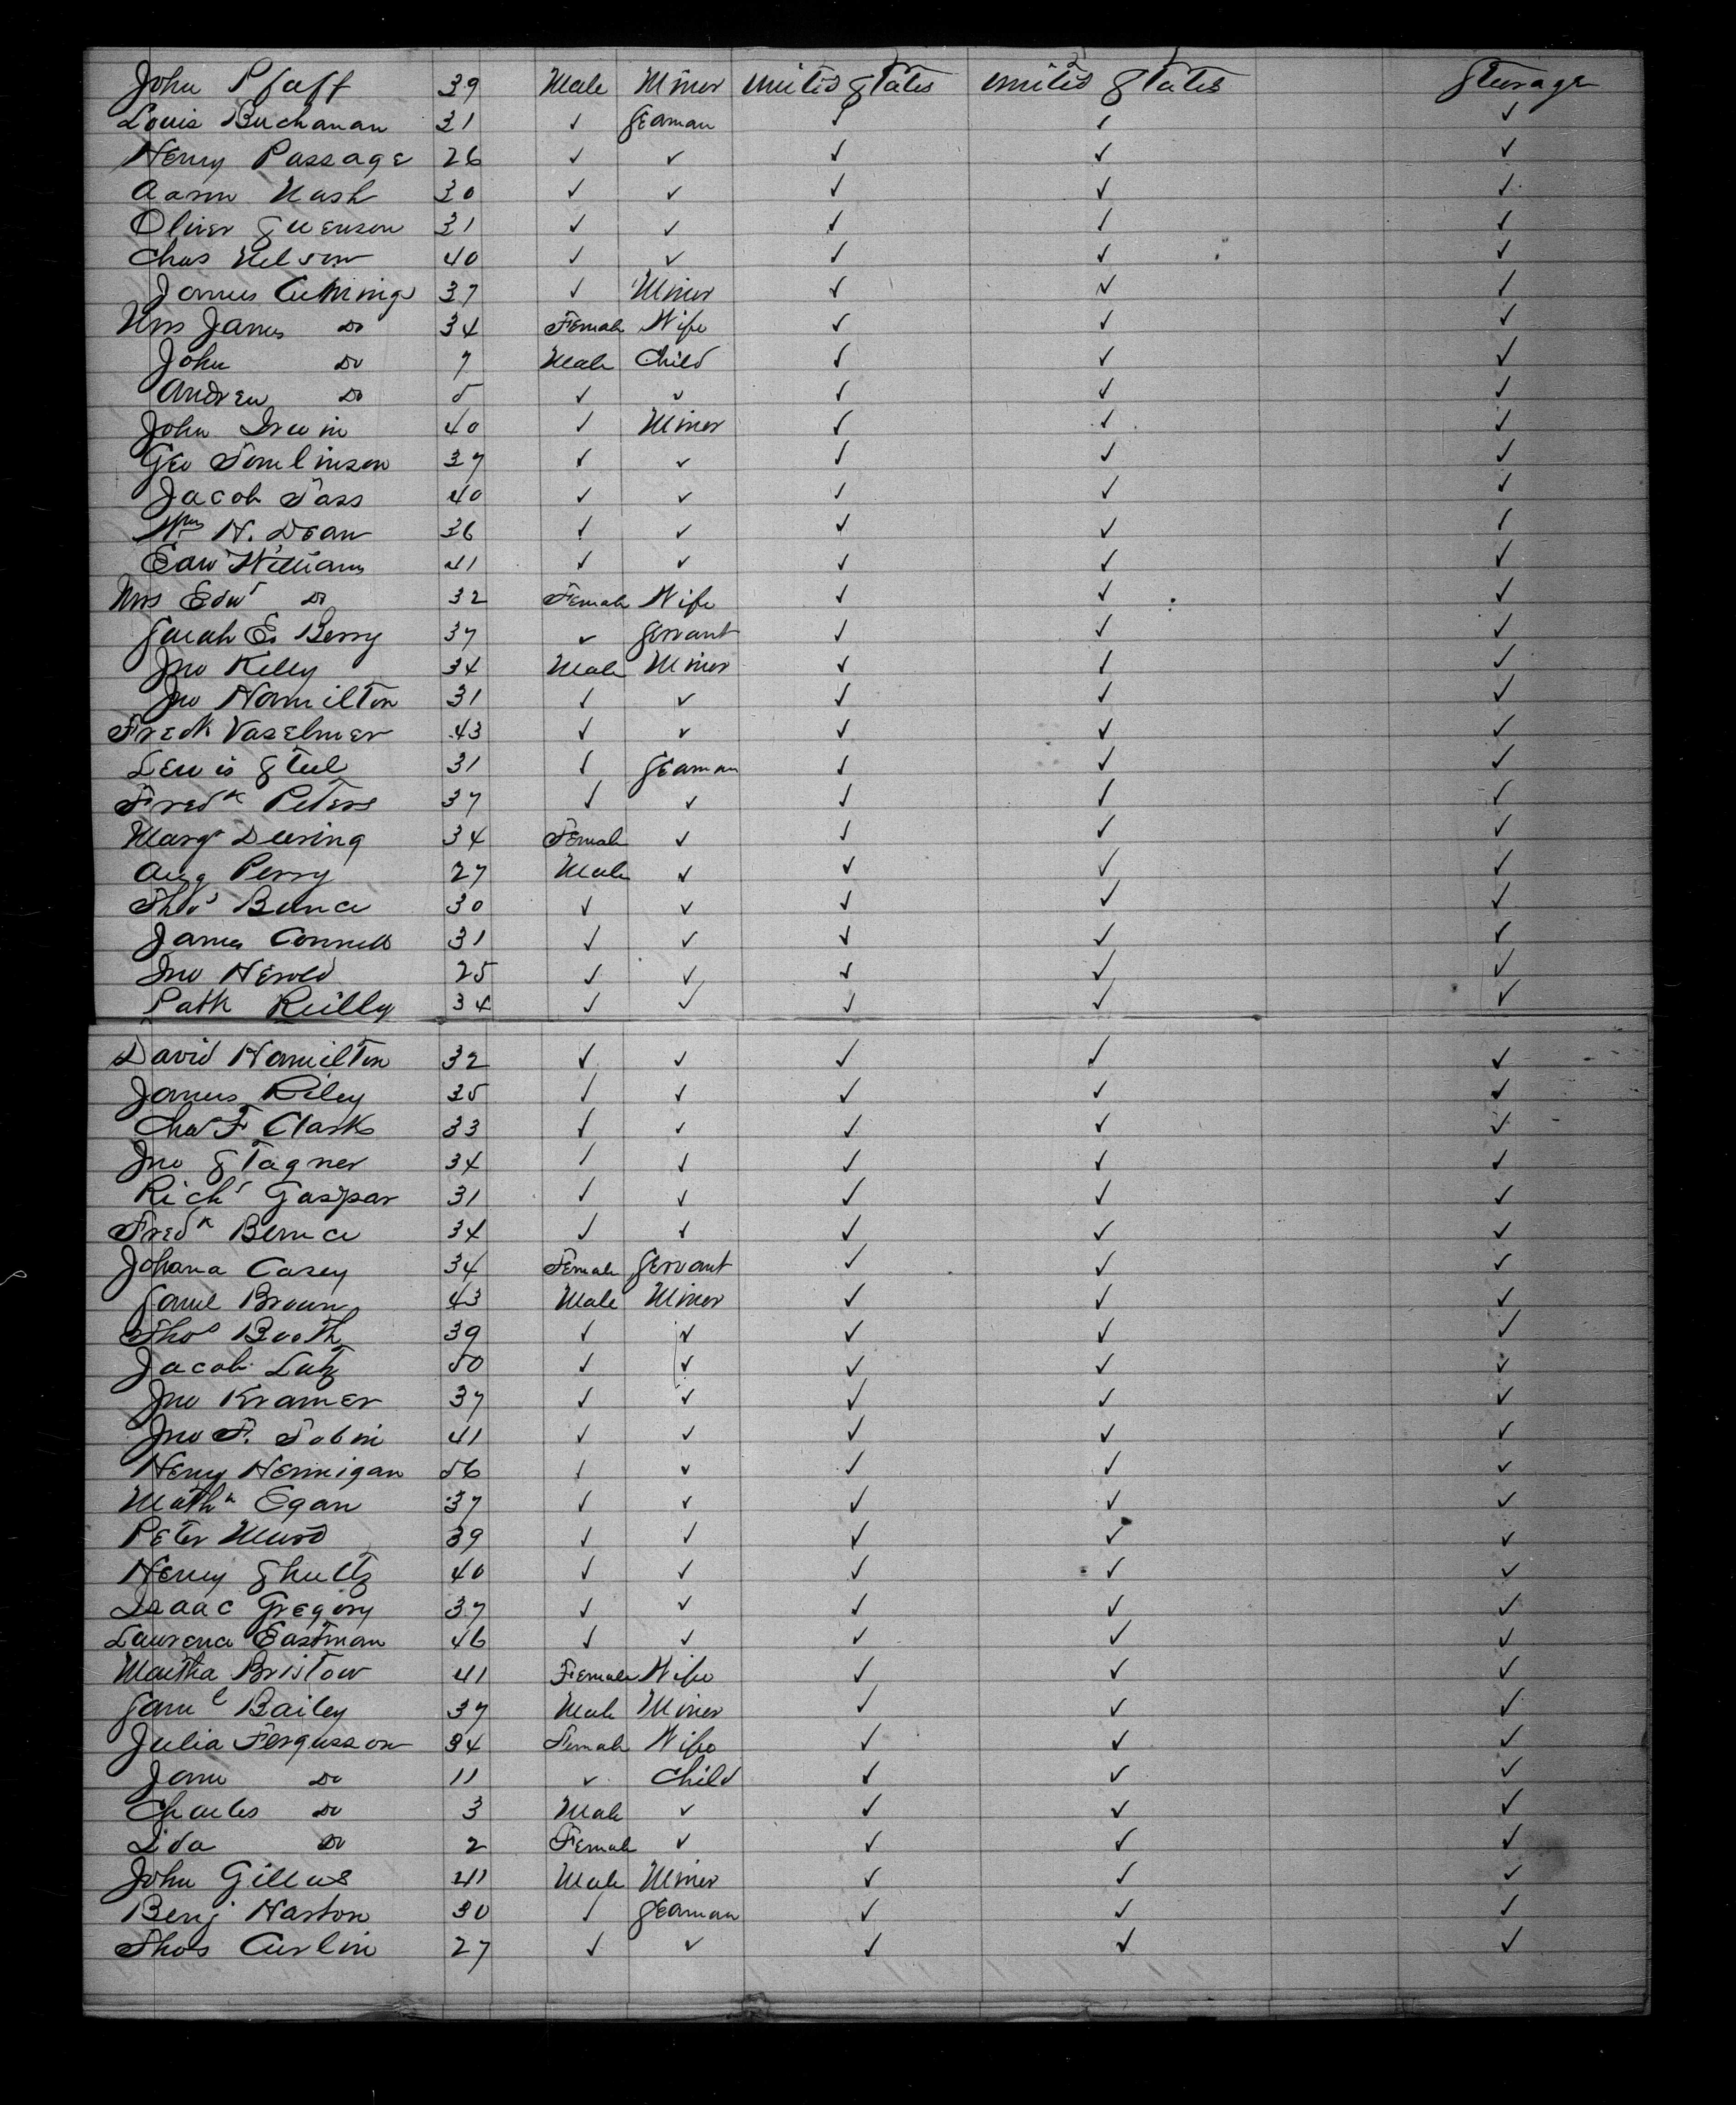 John Pfaff 39 Male Miner United States United States Steerage
Louis Buchanan 31 ✓ Seaman ✓ ✓ ✓
Henry Passage 26 ✓ ✓ ✓ ✓ ✓
Aaron Nash 30 ✓ ✓ ✓ ✓ ✓
Oliver 31 ✓ ✓ ✓ ✓ ✓
Chas Nelson 40 ✓ ✓ ✓ ✓ ✓
James Cummings 37 ✓ Miner ✓ ✓ ✓
Mrs James Do 34 Female Wife ✓ ✓ ✓
John Do 7 Male Child ✓ ✓ ✓
Andrew Do 5 ✓ ✓ ✓ ✓ ✓
John Irwin 40 ✓ Miner ✓ ✓ ✓
Geo Tomlinson 37 ✓ ✓ ✓ ✓ ✓
Jacob Tass 40 ✓ ✓ ✓ ✓ ✓
Wm H. Dean 36 ✓ ✓ ✓ ✓ ✓
Edw Williams 41 ✓ ✓ ✓ ✓ ✓
Mrs Edwd Do 32 Female Wife ✓ ✓ ✓
Sarah E. Berry 37 ✓ Servant ✓ ✓ ✓
Jno Kelly 34 Male Miner ✓ ✓ ✓
Jno Hamilton 31 ✓ ✓ ✓ ✓ ✓
Fredk Vaselmer 43 ✓ ✓ ✓ ✓ ✓
Lewis Steel 31 ✓ Seaman ✓ ✓ ✓
Fredk Peters 37 ✓ ✓ ✓ ✓ ✓
Margt Deering 34 Female ✓ ✓ ✓ ✓
Aug Perry 27 Male ✓ ✓ ✓ ✓
Thos Bence 30 ✓ ✓ ✓ ✓ ✓
James Connell 31 ✓ ✓ ✓ ✓ ✓
Jno Herold 25 ✓ ✓ ✓ ✓ ✓
Patk Reilly 34 ✓ ✓ ✓ ✓ ✓
David Hamilton 32 ✓ ✓ ✓ ✓ ✓
James Riley 35 ✓ ✓ ✓ ✓ ✓
Chas F Clark 33 ✓ ✓ ✓ ✓ ✓
Jno Stagner 34 ✓ ✓ ✓ ✓ ✓
Richd Gaspar 31 ✓ ✓ ✓ ✓ ✓
Fredk Bence 34 ✓ ✓ ✓ ✓ ✓
Johana Casey 34 Female Servant ✓ ✓ ✓
Saml Brown 43 Male Miner ✓ ✓ ✓
Thos Booth 39 ✓ ✓ ✓ ✓ ✓
Jacob Lutz 50 ✓ ✓ ✓ ✓ ✓
Jno Kramer 37 ✓ ✓ ✓ ✓ ✓
Jno F. Tobin 41 ✓ ✓ ✓ ✓ ✓
Henry Hennigan 56 ✓ ✓ ✓ ✓ ✓
Mathw Egan 37 ✓ ✓ ✓ ✓ ✓
Peter 39 ✓ ✓ ✓ ✓ ✓
Henry Shultz 40 ✓ ✓ ✓ ✓ ✓
Isaac Gregory 37 ✓ ✓ ✓ ✓ ✓
Laurence Eastman 46 ✓ ✓ ✓ ✓ ✓
Martha Bristow 41 Female Wife ✓ ✓ ✓
Saml Bailey 37 Male Miner ✓ ✓ ✓
Julia Fergusson 34 Female Wife ✓ ✓ ✓
Jane Do 11 ✓ Child ✓ ✓ ✓
Charles Do 3 Male ✓ ✓ ✓ ✓
Ida Do 2 Female ✓ ✓ ✓ ✓
John Gillus 41 Male Miner ✓ ✓ ✓
Benj Haston 30 ✓ Seaman ✓ ✓ ✓
Thos Curlin 27 ✓ ✓ ✓ ✓ ✓